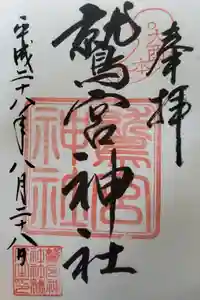 奉拝
鷲宮神社
平成二十八年八月二十八日
鷲宮
神社